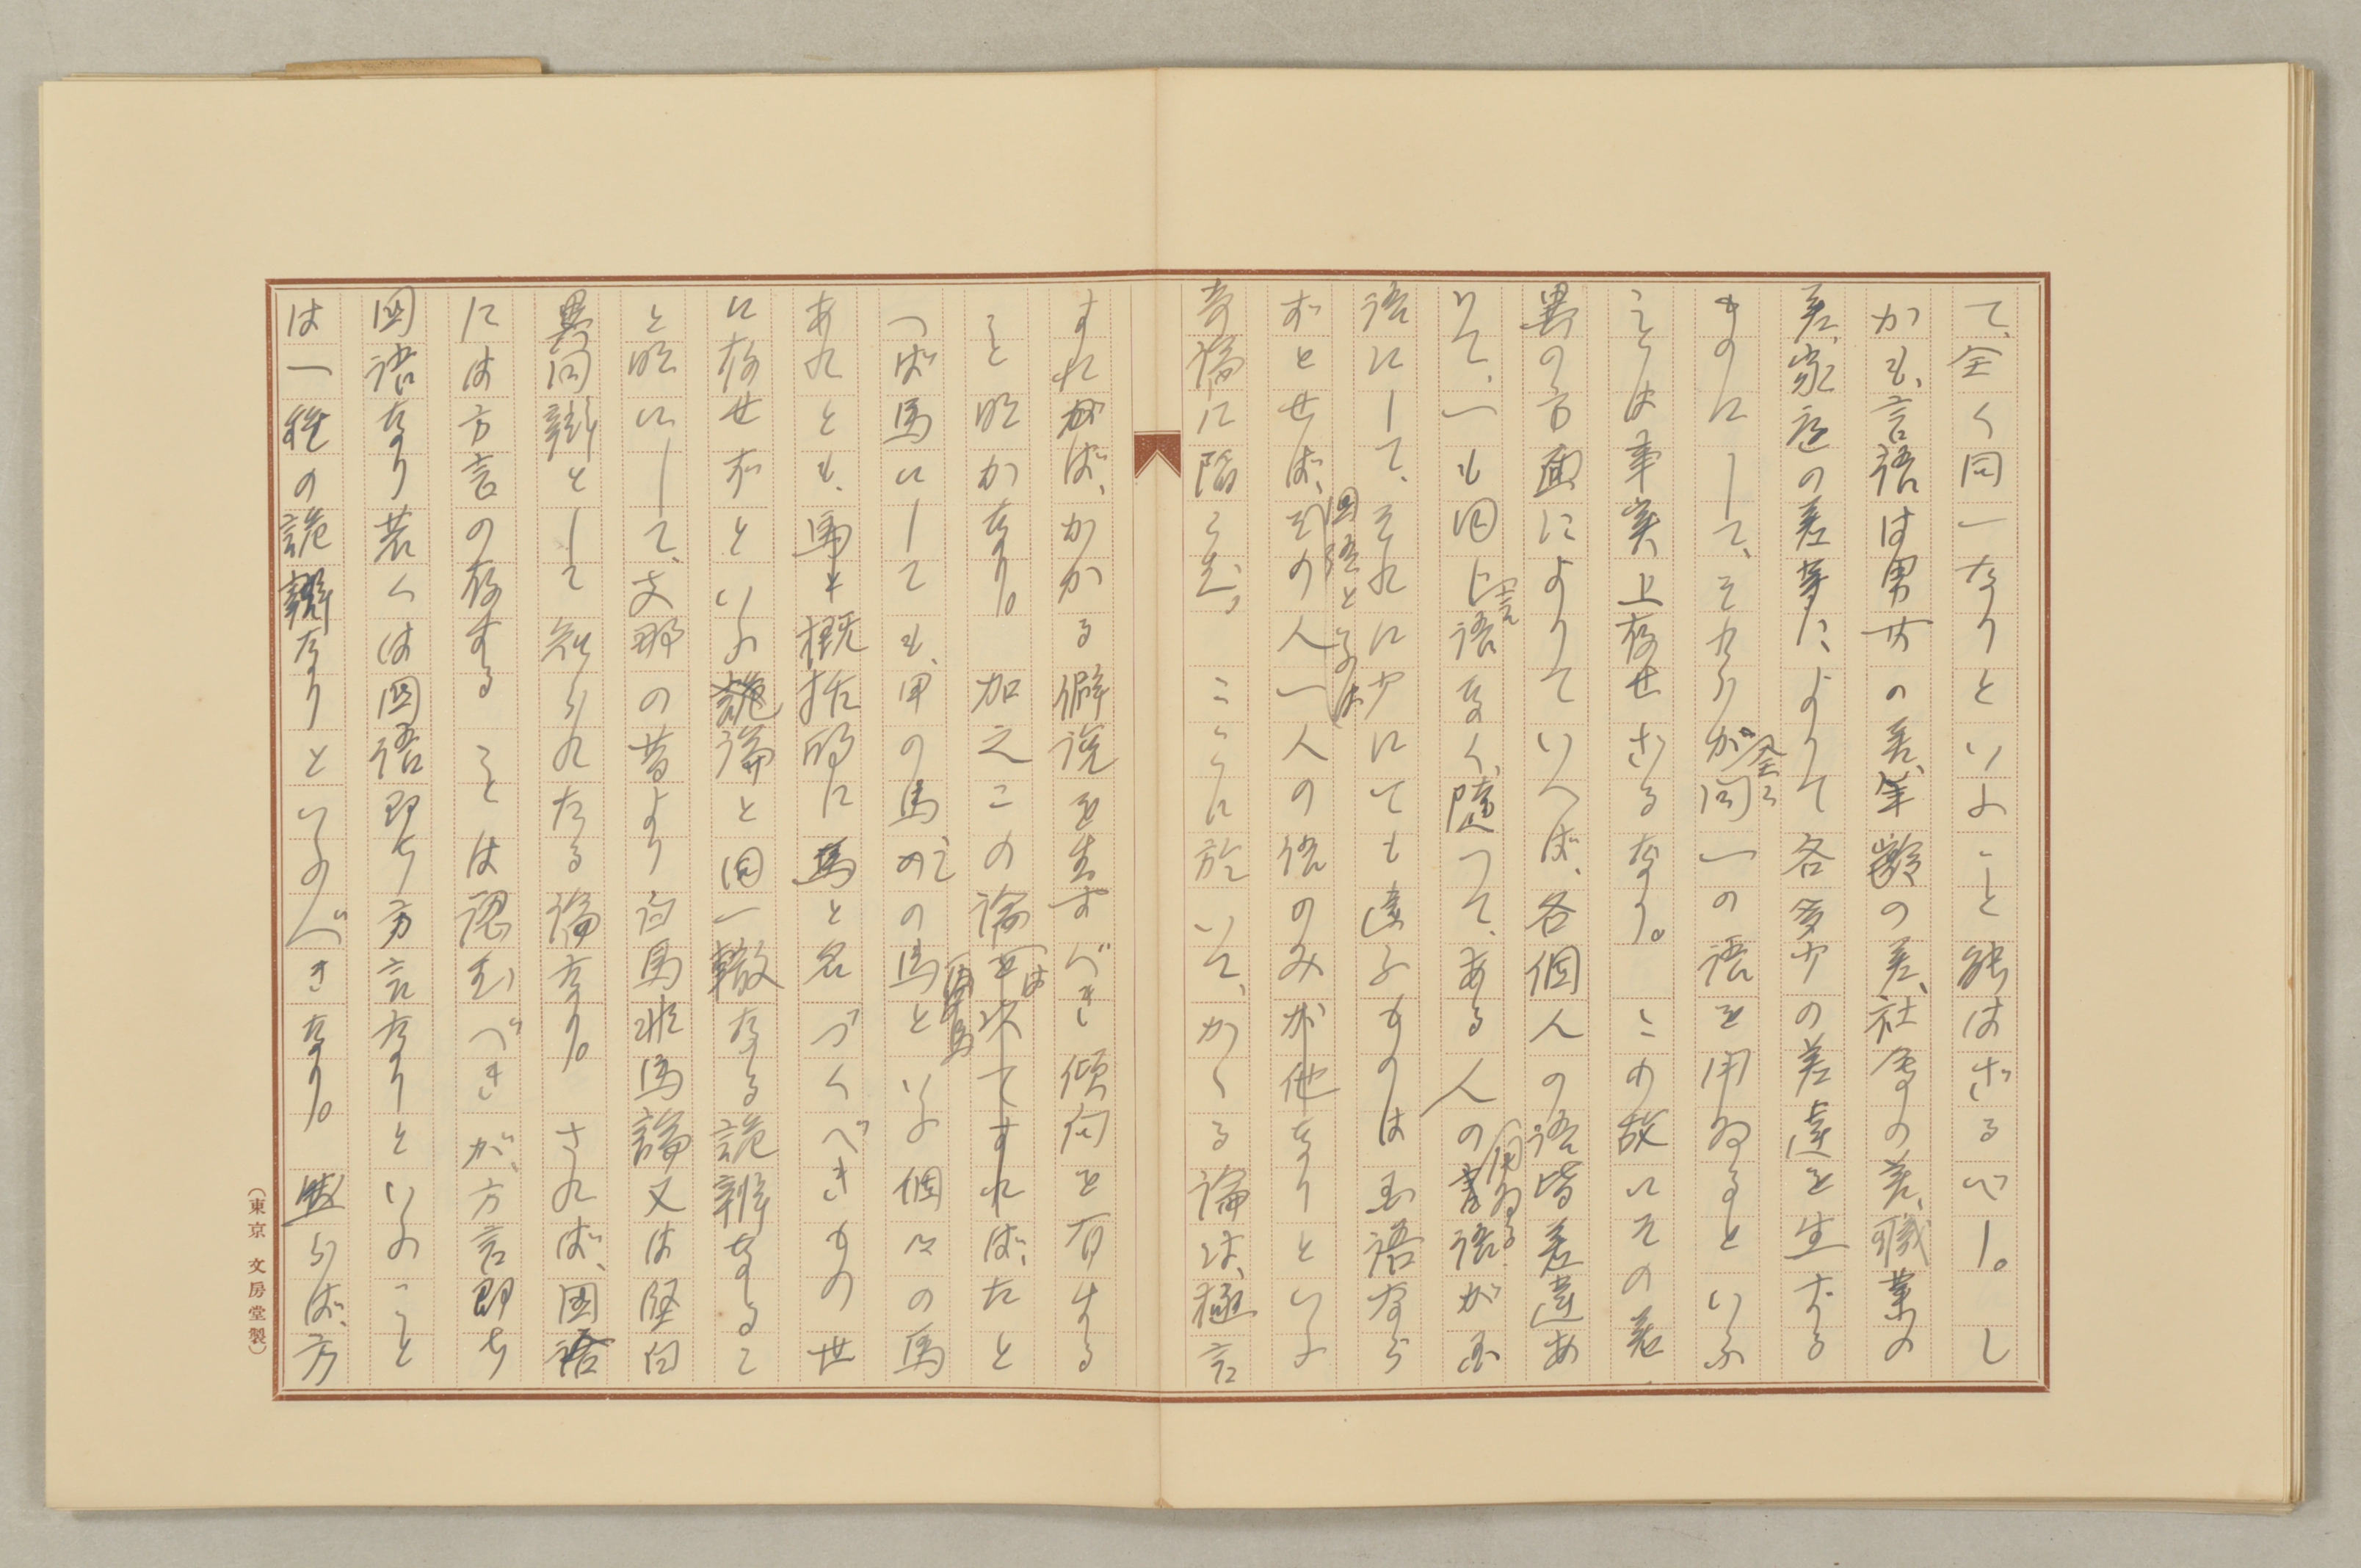 て、全く同一なりといふこと能はざるべし。し
かも、言語は男女の差、年齢の差、社会の差、職業の
差、家庭の差等によりて各多少の差違を生ずる
ものにして、それらが全く同一の語を用ゐるといふ
ことは事実上存せざるなり。この故にその差
異の方面によりていへば、各個人の語皆差違あ
りて、一も同じ言語なく、随つて、ある人の用ゐる語が国
語にして、それに少にても違ふものは国語なら
ずとせば、国語といふはその人一人の語のみが他なりといふ
奇論に陥らむ。こゝに於いて、かゝる論は、極言
すれば、かかる僻説を生ずべき傾向を有する
こと明かなり。加之この論は次てすれば、たと
へば馬にしても、甲の馬乙の馬といふ個々の馬
あれとも、馬と概括的に馬と名づくべきもの世
に存せずといふ議論と同一轍なる詭辯なるこ
と明にして、支那の昔より白馬非馬論又は堅白
異同辯として知られたる論なり。されば、国語
には方言の存することは認むべきが、方言即ち
国語なり若くは国語即ち方言なりといふこと
は一種の詭辯なりといふべきなり。然らば、方
(東京 文房堂製)